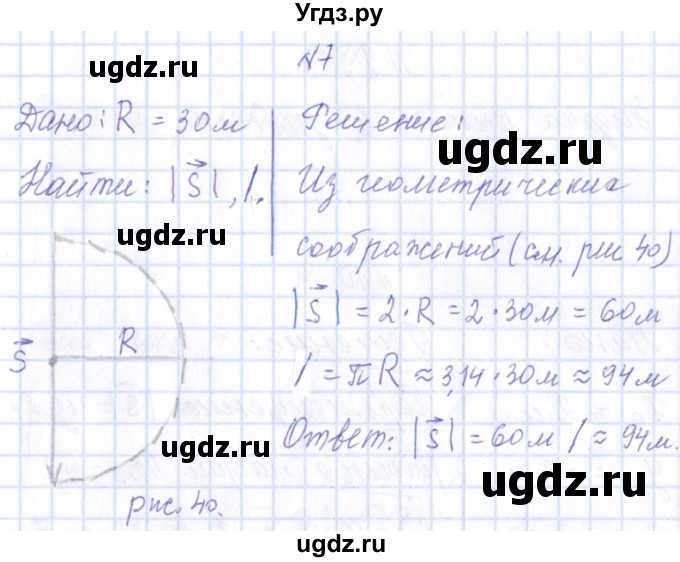 Угдз.ру
ugdz.ru
N7
Дано: R = 30м
Решение:
ugdz.ru
Найти: |S⃗|, l.
Из геометрических
соображений (см. рис 40)
ugdz.ru
|S⃗| = 2·R = 2·30м = 60м
ugdz.ru
S⃗
R
l = πR ≈ 3,14·30м ≈ 94м
Ответ: |S⃗| = 60м l ≈ 94м.
ugdz.ru
ugdz.ru
рис. 40.
ugdz.ru